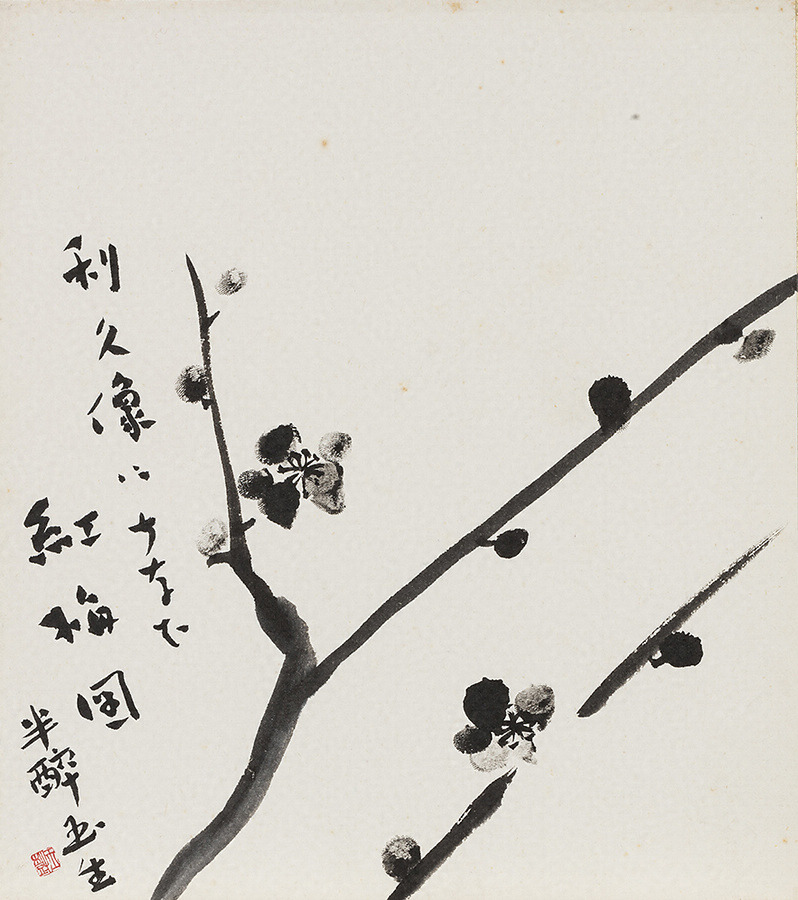 利久像にちなむ
紅梅図
半酔書生